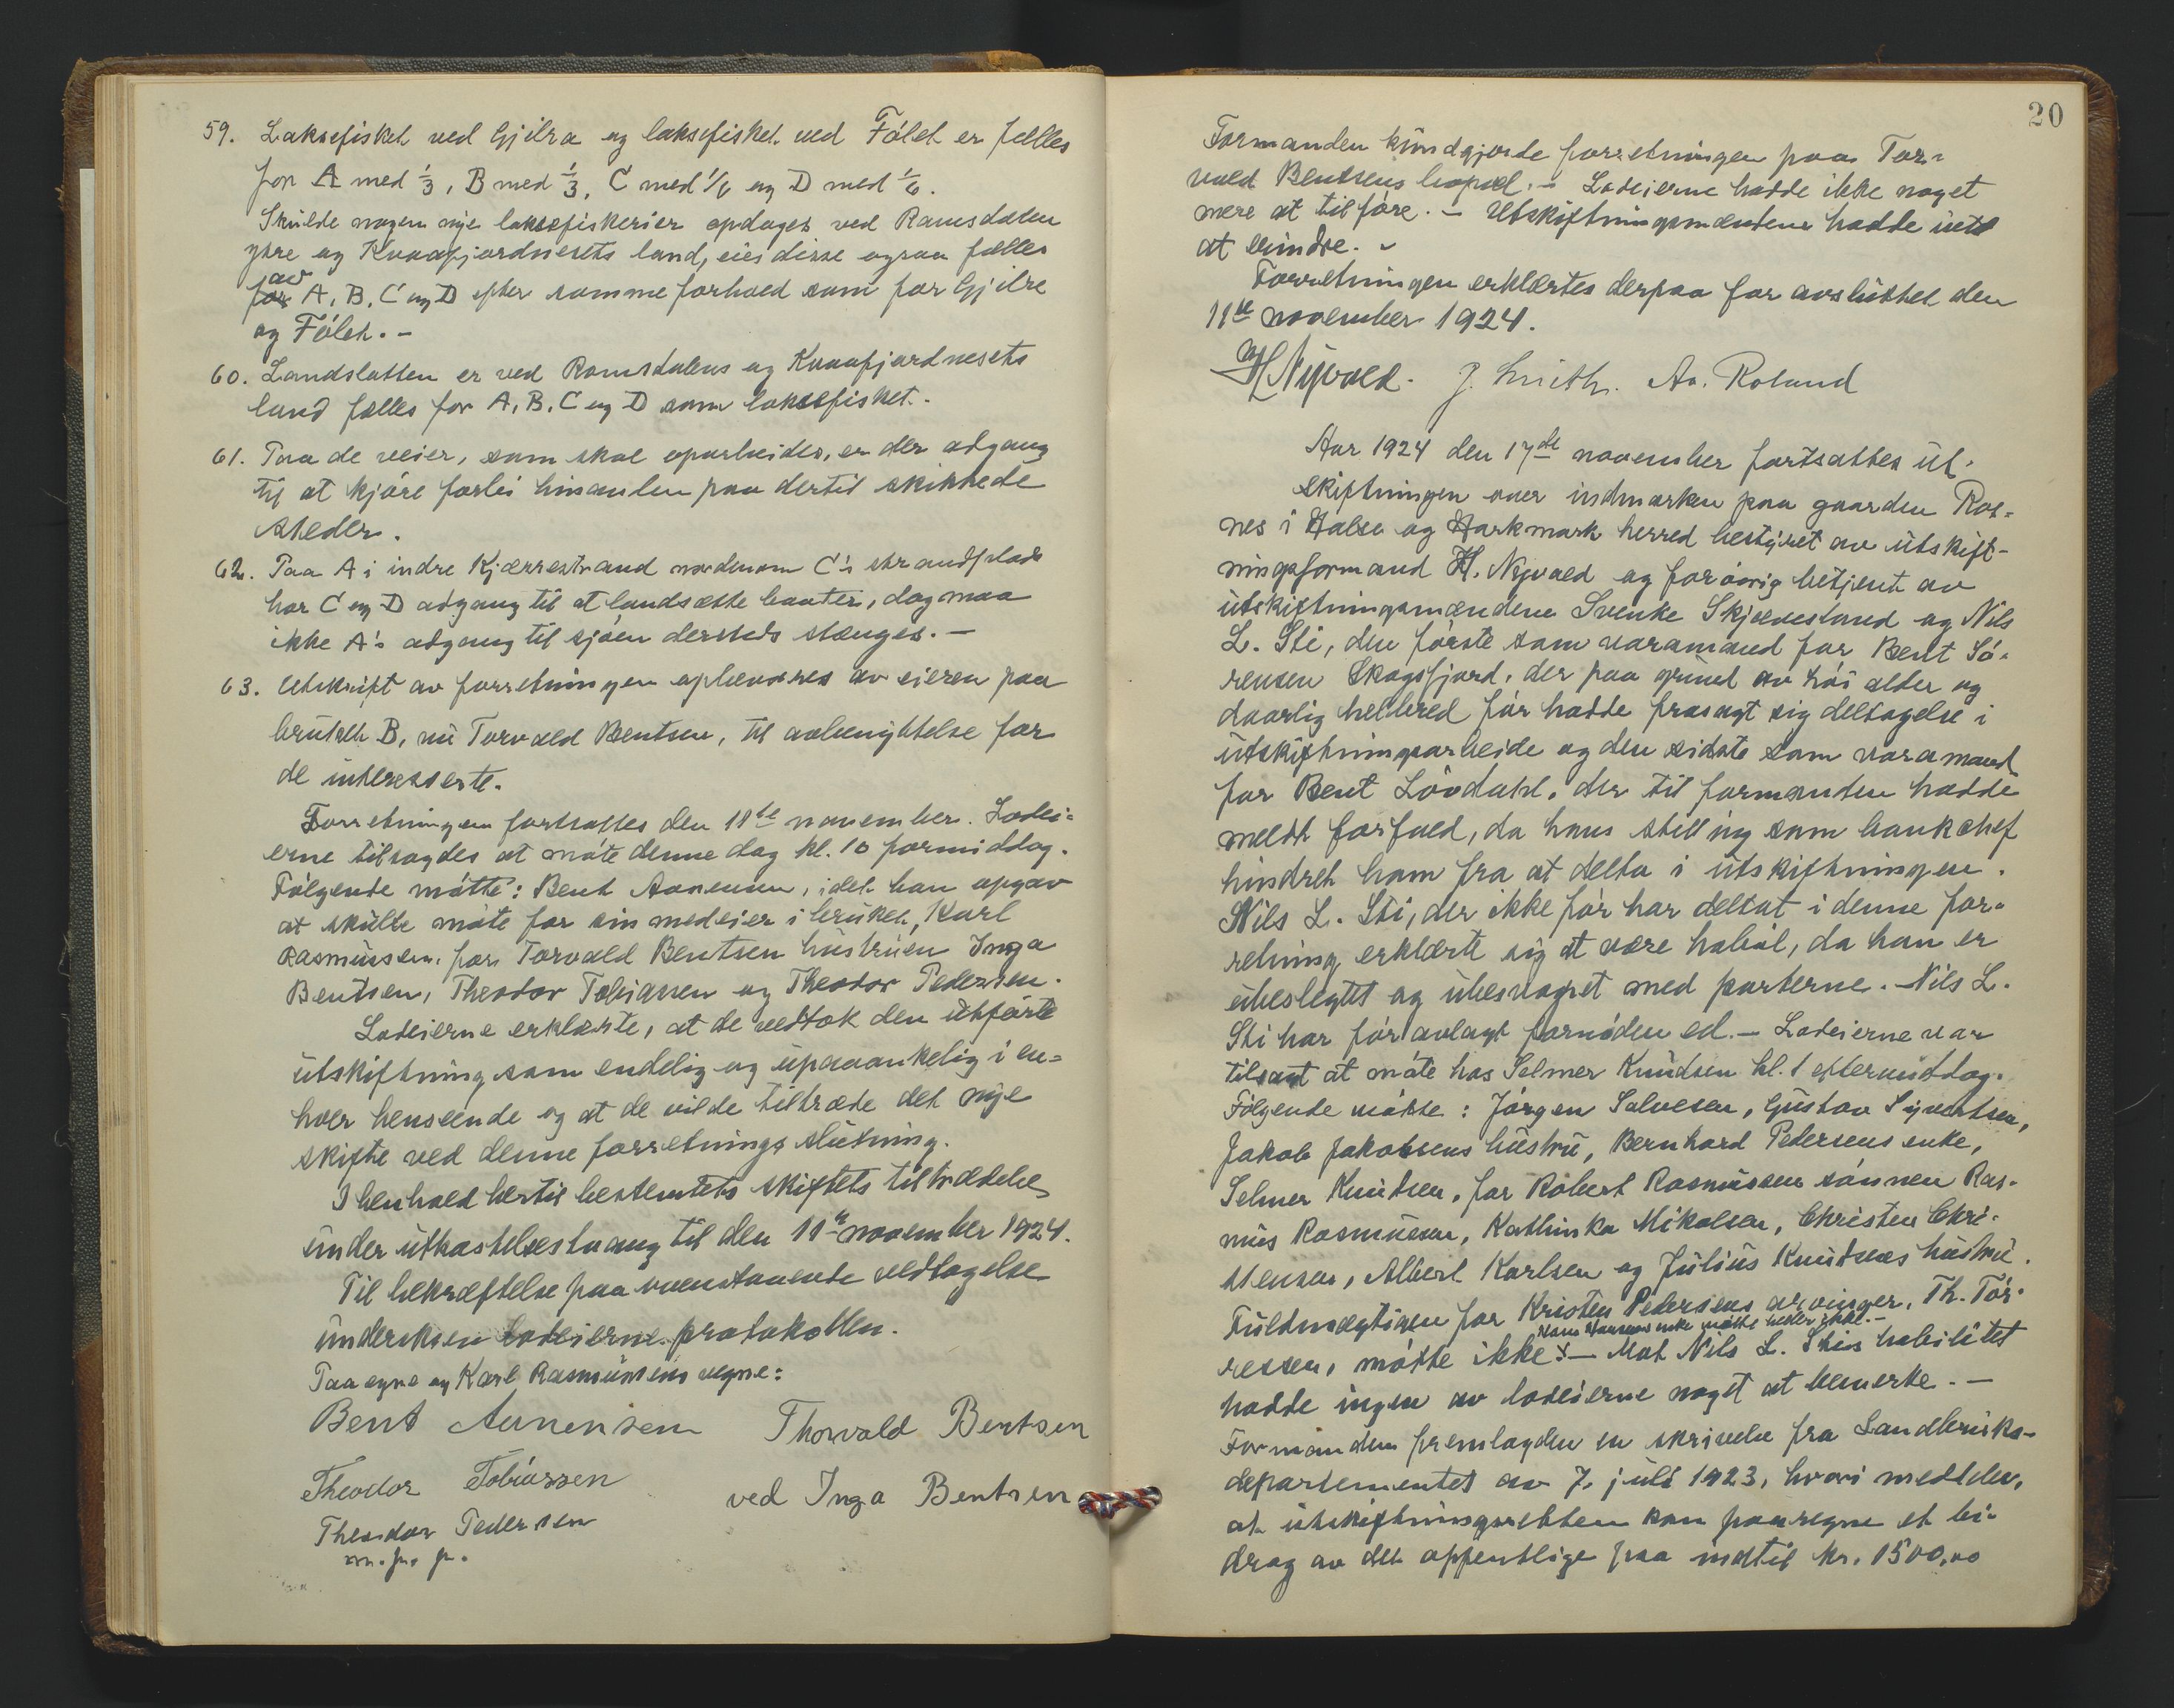 59. Laksefisket ved Gjilra og laksefisket ved Fólet er fælles
for A med 1/3, B med 1/3, C med 1/6 og D med 1/6.
Skulde nogen nye laksefiskerier opdages ved Ramsdalen
ytre og Kvaafjordnesets land, eies disse ogsaa fælles
for av A, B, C og D efter samme forhold som for Gjilre
og Fólet. -
60. Landslotten er ved Ramsdalens og Kvaafjordnesets
land fælles for A, B, C og D som laksefisket. -
61. Paa de veier, som skal oparbeides, er der adgang
til at kjøre forbi hinanden paa dertil skikkede
steder.
62. Paa A i indre Kjærrestrand nordenom C's strandplads
har C og D adgang til at landsætte baater, dog maa
ikke A's adgang til sjøen dersteds stænges. -
63. Utskrift av forretningen opbevares av eieren paa
bruket B, nu Torvald Bentsen, til avbenyttelse for
de interesserte.
Forretningen fortsattes den 11te november. Lodei-
erne tilsagdes at møte denne dag kl. 10 formiddag.
Følgende møtte: Bent Aanensen, idet han opgav
at skulle møte for sin medeier i bruket, Karl
Rasmussen, for Torvald Bentsen hustruen Inga
Bentsen, Theodor Tobiassen og Theodor Pedersen.
Lodeierne erklærte, at de vedtok den utførte
utskiftning som endelig og upaaankelig i en-
hver henseende og at de vilde tiltræde det nye
skifte ved denne forretnings slutning.
I henhold hertil bestemtes skiftets tiltrædelse
under utkastelsestvang til den 11te november 1924.
Til bekræftelse paa ovenstaaende vedtagelse
underskrev lodeierne protokollen.
Paa egne og Karl Rasmussens vegne:
Bent Aanensen Thorvald Bentsen
Theodor Tobiassen ved Inga Bentsen
Theodor Pedersen
m. p. p.
20
Formanden kundgjorde forretningen paa Tor-
vald Bentsens bopæl. - Lodeierne hadde ikke noget
mere at tilføre. - Utskiftningsmændene hadde intet
at erindre. -
Forretningen erklærtes derpaa for avsluttet den
11te november 1924.
H Nyvold. J. Smith. Aa. Roland
Aar 1924 den 17de november fortsattes ut-
skiftningen over indmarken paa gaarden Ros-
nes i Halse og Harkmark herred bestyret av utskift-
ningsformand H. Nyvold og forøvrig betjent av
utskiftningsmændene Svenke Skjævesland og Nils
L. Sti, den første som varamand for Bent Sø-
rensen Skogsfjord, der paa grund av høi alder og
daarlig helbred før hadde frasagt sig deltagelse i
utskiftningsarbeide og den sidste som varamand
for Bent Lövdahl, der til formanden hadde
meldt forfald, da hans stilling som bankchef
hindret ham fra at delta i utskiftningen.
Nils L. Sti, der ikke før har deltat i denne for-
retning erklærte sig at være habil, da han er
ubeslegtet og ubesvogret med parterne. Nils L.
Sti har før avlagt fornøden ed. - Lodeierne var
tilsagt at møte hos Selmer Knudsen kl. 1 eftermiddag.
Følgende møtte: Jørgen Salvesen, Gustav Syvertsen,
Jakob Jakobsens hustru, Bernhard Pedersens enke,
Selmer Knudsen, for Robert Rasmussen sønnen Ras-
mus Rasmussen, Kathinka Mikalsen, Christen Chri-
stensen, Albert Karlsen og Julius Knudsens hustru.
Fuldmægtigen for Kristen Pedersens arvinger, Th. Tor-
Hans Hansens enke møtte heller ikke. -
ressen, møtte ikke. - Mot Nils L. Sties habilitet
hadde ingen av lodeierne noget at bemerke. -
Formanden fremlagde en skrivelse fra Landbruks-
departementet av 7. juli 1923, hvori meddeles,
at utskiftningsretten kan paaregne et bi-
drag av det offentlige paa indtil kr. 1500,00